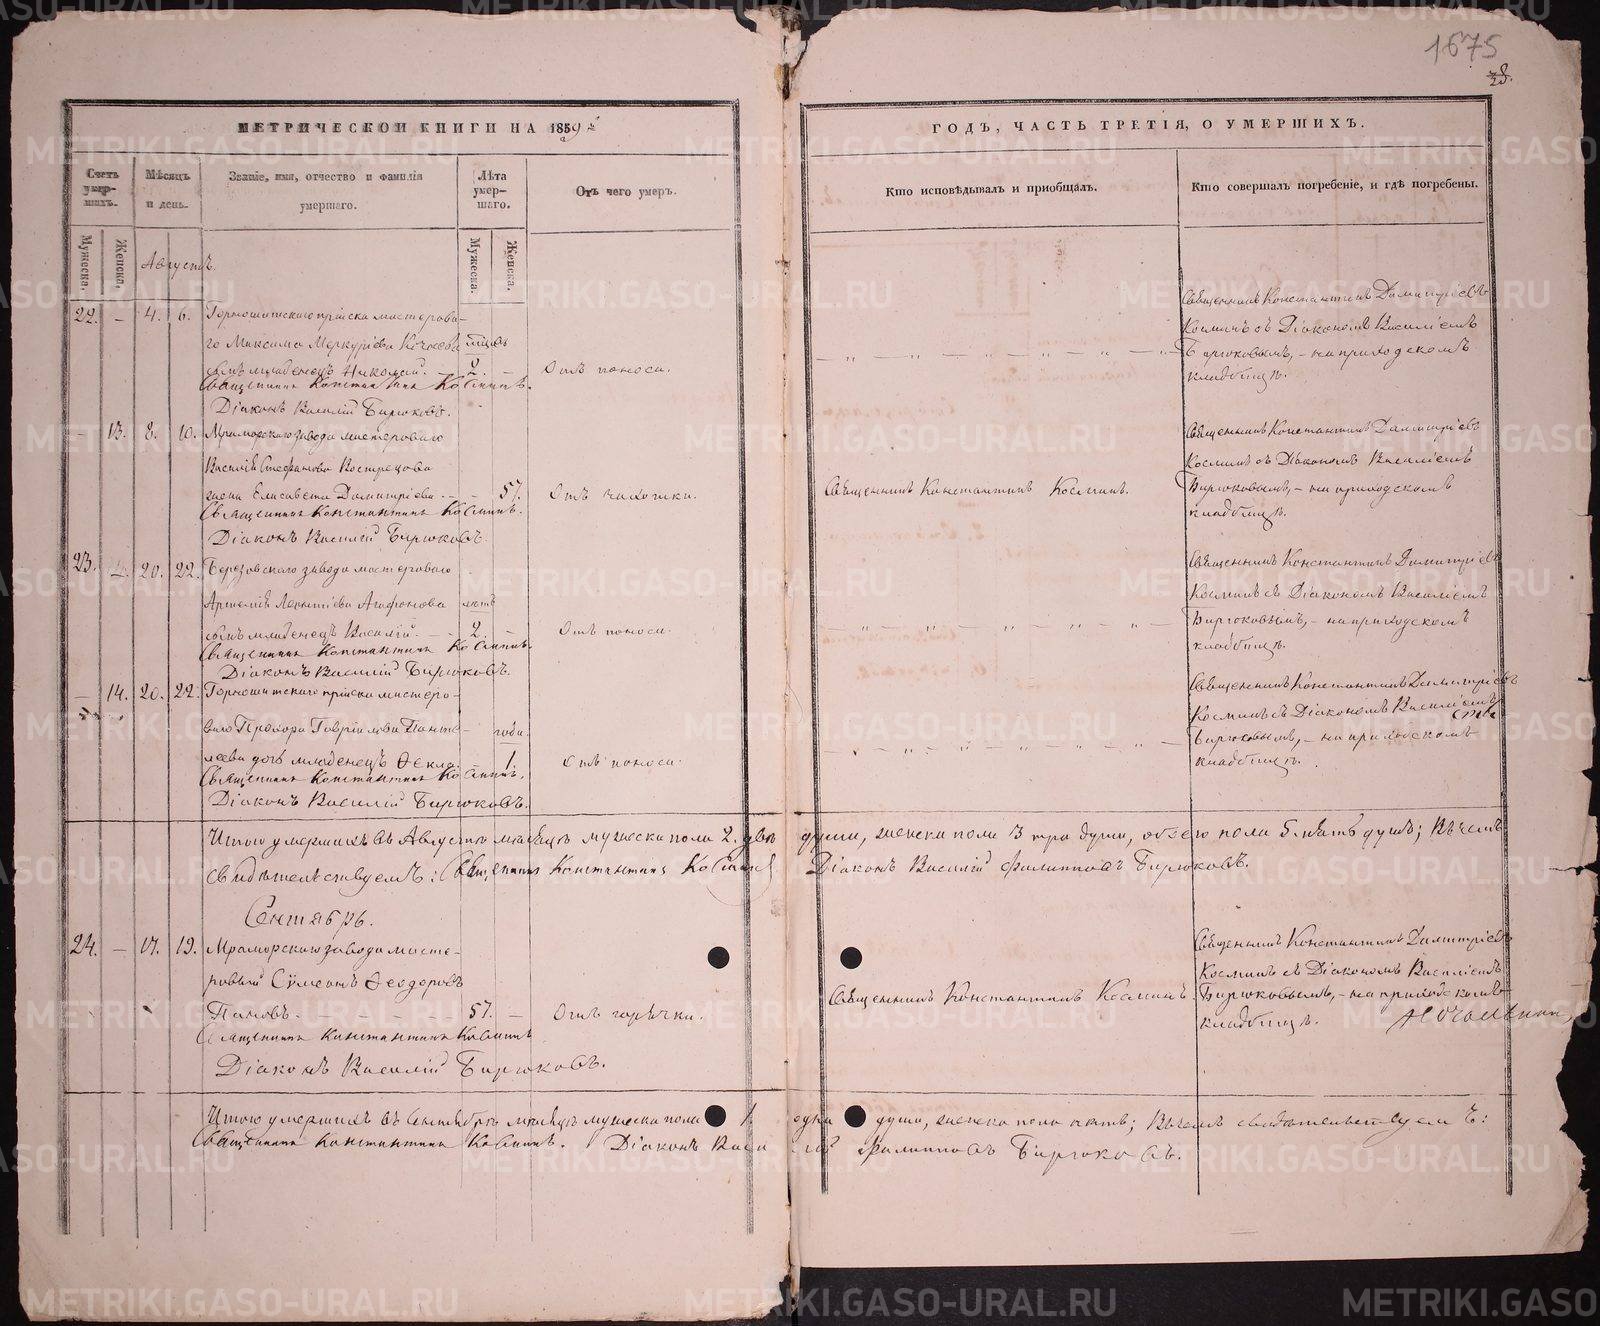 1675
28.
МЕТРИЧЕСКОЙ КНИГИ НА 1859й
ГОДЪ, ЧАСТЬ ТРЕТІЯ, О УМЕРШИХЪ.
Счетъ умер-шихъ.
Мѣсяцъ и день.
Званіе, имя, отчество и фамилія умершаго.
Лѣта умер-шаго.
Отъ чего умеръ.
Кто исповѣдывалъ и пріобщалъ.
Кто совершалъ погребеніе, и гдѣ погребены.
Мужеска.
Женска.
Мужеска.
Женска.
Августъ.
22. – 4. 6. Горнощитскаго пріиска мастерова-
го Максима Меркурьева
сынъ младенецъ Николай. – 2. – Отъ поноса.
Священникъ Константинъ Косминъ.
Діаконъ Василій Бирюковъ.
Священникъ Константинъ Димитріевъ
Косминъ съ Діакономъ Василіемъ
Бирюковымъ, – на приходскомъ
кладбищѣ.
– 13. 8. 10. Мраморскаго завода мастероваго
Василія Стефанова Вострецова
жена Елисавета Димитріева. – – 57. Отъ чахотки. Священникъ Константинъ Косминъ.
Священникъ Константинъ Косминъ.
Діаконъ Василій Бирюковъ.
Священникъ Константинъ Димитріевъ
Косминъ съ Діакономъ Василіемъ
Бирюковымъ, – на приходскомъ
кладбищѣ.
23. – 20. 22. Березовскаго завода мастероваго
Артемія Леонтіева Агафонова лѣтъ
сынъ младенецъ Василій. – 2. – Отъ поноса.
Священникъ Константинъ Косминъ.
Діаконъ Василій Бирюковъ.
Священникъ Константинъ Димитріевъ
Косминъ съ Діакономъ Василіемъ
Бирюковымъ, – на приходскомъ
кладбищѣ.
– 14. 20. 22. Горнощитскаго пріиска мастеро-
ваго Прохора Гавріилова Панте- года
леева дочь младенецъ Ѳекла. – 1. Отъ поноса.
Священникъ Константинъ Косминъ.
Діаконъ Василій Бирюковъ.
Священникъ Константинъ Димитріевъ
Косминъ съ Діакономъ Василіемъ
Бирюковымъ, – на приходскомъ
кладбищѣ.
Итого умершихъ въ Августѣ мѣсяцѣ мужеска пола 2. двѣ души, женска пола 3 три души, обоего пола 5. пять душъ; Въ чемъ
свидѣтельствуемъ: Священникъ Константинъ Косминъ Діаконъ Василій Филипповъ Бирюковъ.
Сентябрь.
24. – 17. 19. Мраморскаго завода масте-
ровый Сѵмеонъ Ѳеодоровъ
Пановъ. – – – – 57. – Отъ горячки. Священникъ Константинъ Косминъ.
Священникъ Константинъ Косминъ
Діаконъ Василій Бирюковъ.
Священникъ Константинъ Димитріевъ
Косминъ съ Діакономъ Василіемъ
Бирюковымъ, – на приходскомъ
кладбищѣ.
Итого умершихъ въ Сентябрѣ мѣсяцѣ мужеска пола 1 одна душа, женска пола нѣтъ; Въ чемъ свидѣтельствуемъ:
Священникъ Константинъ Косминъ. Діаконъ Василій Филипповъ Бирюковъ.
METRIKI.GASO-URAL.RU